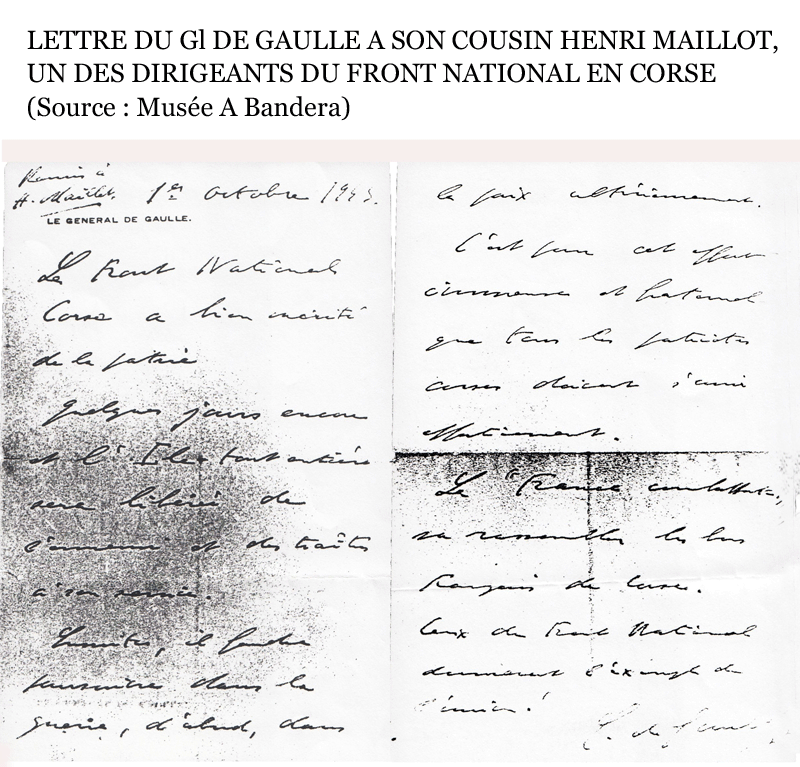 LETTRE DU Gl DE GAULLE A SON COUSIN HENRI MAILLOT,
UN DES DIRIGEANTS DU FRONT NATIONAL EN CORSE
(Source : Musée A Bandera)
Remis à
H. Maillot. 1er octobre 1943.
LE GENERAL DE GAULLE.
Le Front National
Corse a bien mérité
de la patrie
Quelques jours encore
et l'Ile tout entière
sera libérée de
l'ennemi et des traîtres
à son service.
Ensuite, il faudra
poursuivre dans la
guerre, d'abord, dans
la paix ultérieurement.
C'est pour cet effort
immense et fraternel
que tous les patriotes
corses doivent s'unir
effectivement.
La "France combattante"
va rassembler les bons
Français de Corse.
Ceux du Front National
donneront l'exemple de
l'union !
C. de Gaulle